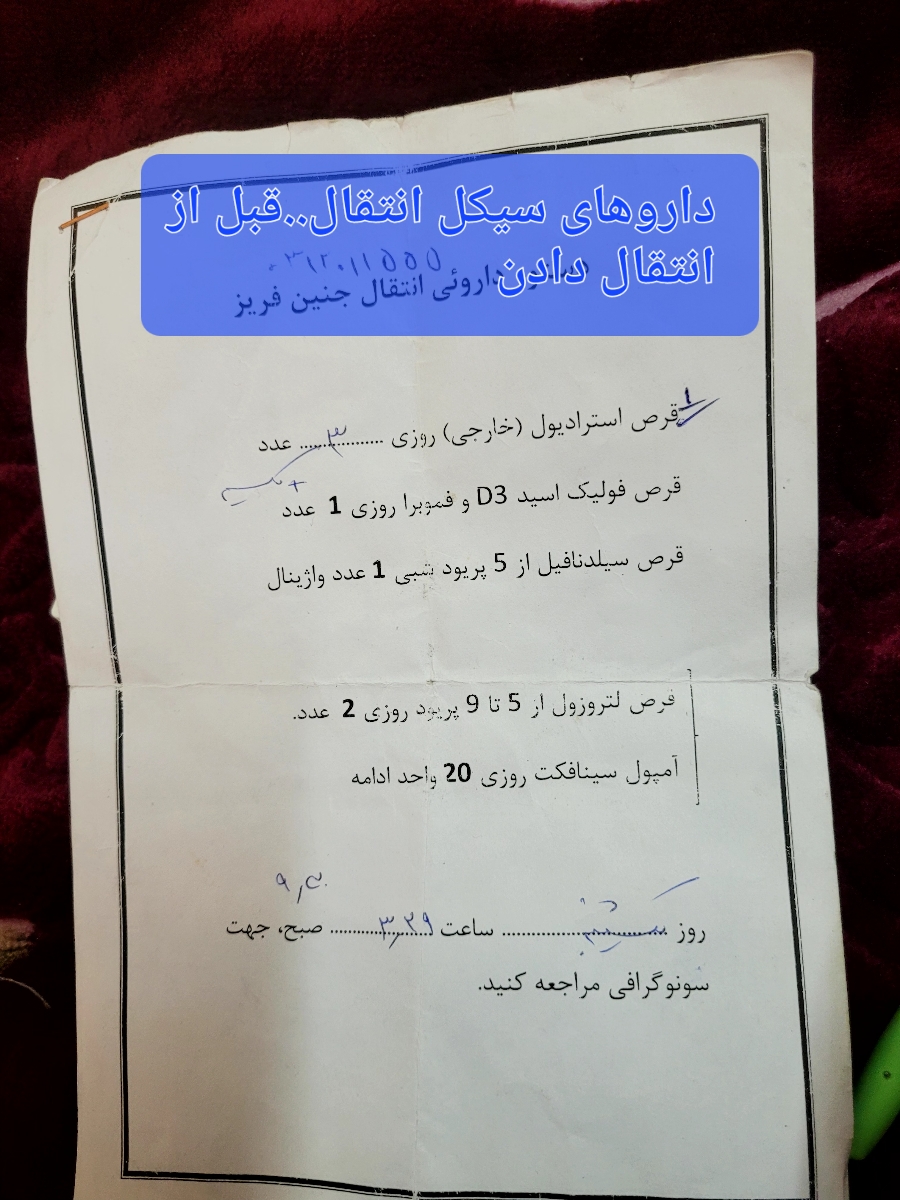 داروهای سیکل انتقال..قبل از
انتقال دادن
داروئی انتقال جنین فریز
1
قرص استرادیول (خارجی) روزی .......۳....... عدد
قرص فولیک اسید D3 و فموبرا روزی 1 عدد
قرص سیلدنافیل از 5 پریود شبی 1 عدد واژینال
قرص لتروزول از 5 تا 9 پریود روزی 2 عدد.
آمپول سینافکت روزی 20 واحد ادامه
روز ................ ساعت ................ صبح، جهت
سونوگرافی مراجعه کنید.